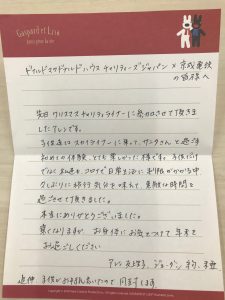 Gaspard et Lisa
ドナルド・マクドナルド・ハウス チャリティーズジャパン × 京成電鉄
の皆様へ
先日 クリスマスチャリティライナーに参加させて頂きま
したアレンです。
子供達はスカイライナーに乗って、サンタさんと過ごす
初めての体験、とても楽しかった様です。子供だけ
でなく私達も、コロナで日常生活に制限がかかる中、
久しぶりに旅行気分を味わえて、素敵な時間を
過ごさせて頂きました。
本当にありがとうございました。
寒くなりますが、お身体にお気をつけて年末を
お過ごしください
アレン
追伸 子供がお手紙書いたので 同封します。